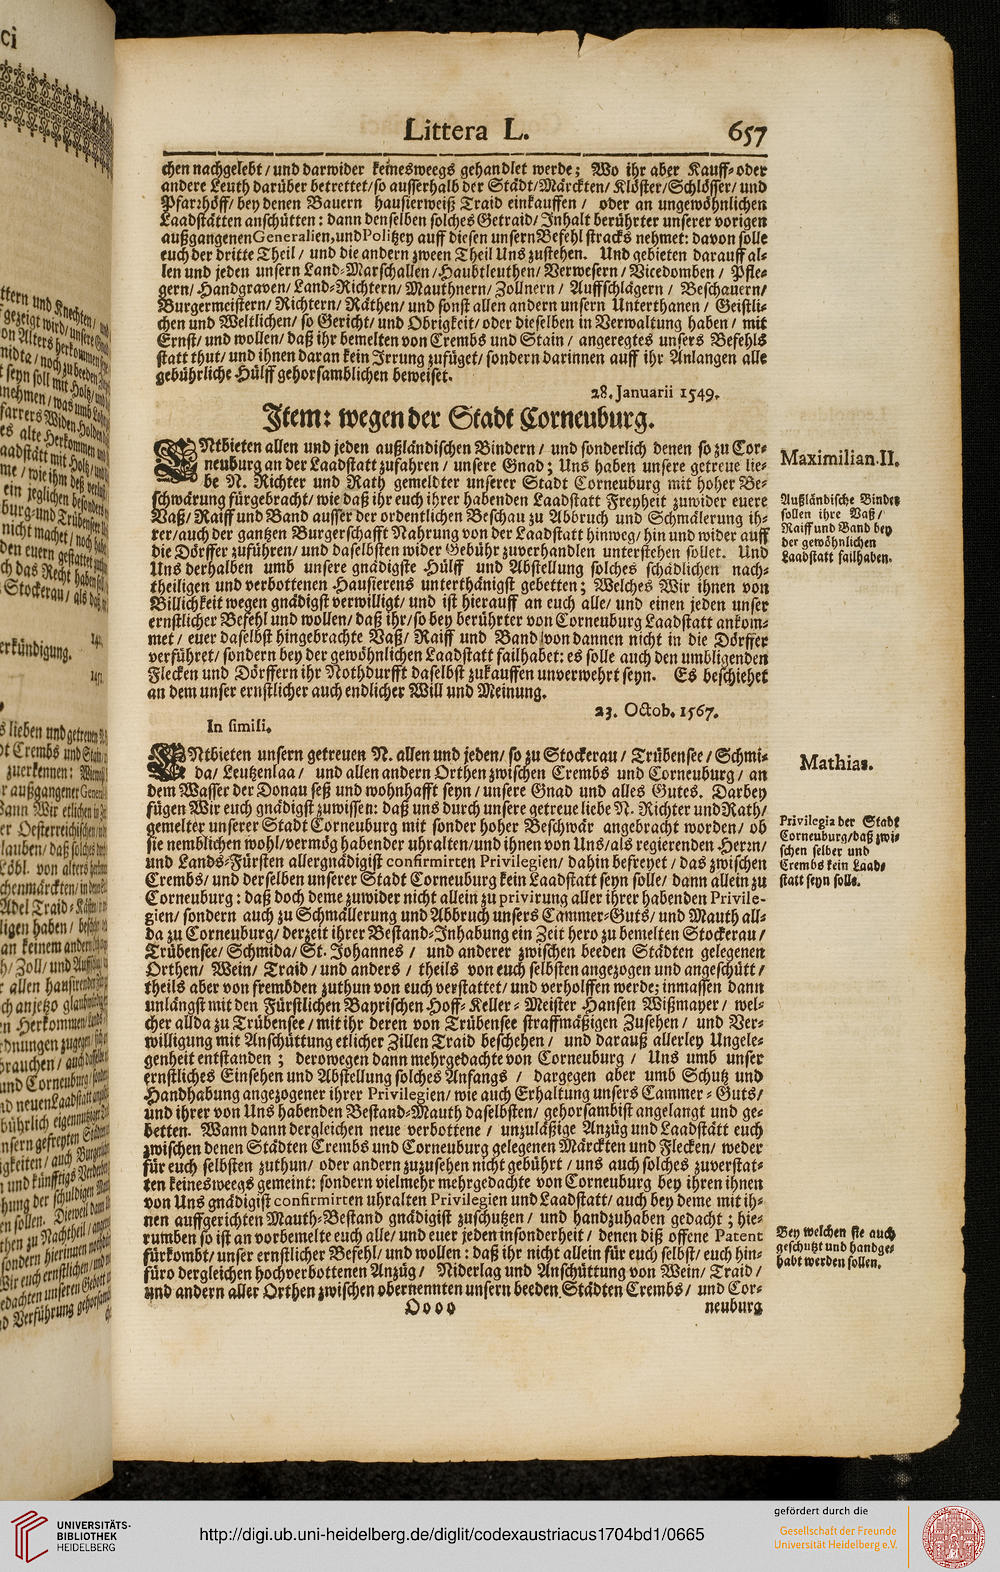 Littera L. 657
chen nachgelebt / und darwider keinesweegs gehandlet werde; Wo ihr aber Kauff-oder
andere Leuth darüber betrettet/so ausserhalb der Städt/Märckten/ Klöster/Schlösser/ und
Pfarzhöff/ bey denen Bauern hausierweiß Traid einkauffen / oder an ungewöhnlichen
Laadstätten anschütten: dann denselben solches Getraid/ Inhalt berührter unserer vorigen
außgangenen Generalien, und Politzey auff diesen unsern Befehl stracks nehmet: davon solle
euch der dritte Theil / und die andern zween Theil Uns zustehen. Und gebieten darauff al-
len und jeden unsern Land-Marschallen / Haubtleuthen/ Verwesern / Vicedomben / Pfle-
gern/ Handgraven/ Land-Richtern/ Mauthnern/ Zollnern / Auffschlägern / Beschauern/
Burgermeistern/ Richtern/ Räthen/ und sonst allen andern unsern Unterthanen / Geistli-
chen und Weltlichen/ so Gericht/ und Obrigkeit/ oder dieselben in Verwaltung haben / mit
Ernst/ und wollen/ daß ihr bemelten von Crembs und Stain / angeregtes unsers Befehls
statt thut/ und ihnen daran kein Irrung zufüget/ sondern darinnen auff ihr Anlangen alle
gebührliche Hülff gehorsamblichen beweiset.
28. Januarii 1549.
Item: wegen der Stadt Corneuburg.
ENtbieten allen und jeden außländischen Bindern / und sonderlich denen so zu Cor-
neuburg an der Laadstatt zufahren / unsere Gnad; Uns haben unsere getreue lie-
be N. Richter und Rath gemeldter unserer Stadt Corneuburg mit hoher Be-
schwärung fürgebracht/ wie daß ihr euch ihrer habenden Laadstatt Freyheit zuwider euere
Vaß/ Raiff und Band ausser der ordentlichen Beschau zu Abbruch und Schmälerung ih-
rer/auch der gantzen Burgerschafft Nahrung von der Laadstatt hinweg/ hin und wider auff
die Dörffer zuführen/ und daselbsten wider Gebühr zuverhandlen unterstehen sollet. Und
Uns derhalben umb unsere gnädigste Hülff und Abstellung solches schädlichen nach-
theiligen und verbottenen Hausierens unterthänigst gebetten; Welches Wir ihnen von
Billichkeit wegen gnädigst verwilligt/ und ist hierauff an euch alle/ und einen jeden unser
ernstlicher Befehl und wollen/ daß ihr/so bey berührter von Corneuburg Laadstatt ankom-
met / euer daselbst hingebrachte Vaß/ Raiff und Band von dannen nicht in die Dörffer
verführet/ sondern bey der gewöhnlichen Laadstatt failhabet: es solle auch den umbligenden
Flecken und Dörffern ihr Nothdurfft daselbst zukauffen unverwehrt seyn. Es beschiehet
an dem unser ernstlicher auch endlicher Will und Meinung.
23. Octob. 1567.
Maximilian. II.
Außländische Binder
sollen ihre Vaß /
Raiff und Band bey
der gewöhnlichen
Laadstatt failhaben.
In simili.
ENtbieten unsern getreuen N. allen und jeden/ so zu Stockerau / Trübensee / Schmi-
da/ Leutzenlaa / und allen andern Orthen zwischen Crembs und Corneuburg / an
dem Wasser der Donau seß und wohnhafft seyn / unsere Gnad und alles Gutes. Darbey
fügen Wir euch gnädigst zuwissen: daß uns durch unsere getreue liebe N. Richter und Rath/
gemelter unserer Stadt Corneuburg mit sonder hoher Beschwär angebracht worden/ ob
sie nemblichen wohl/vermög habender uhralten/und ihnen von Uns/als regierenden Herrn/
und Lands-Fürsten allergnädigist confirmirten Privilegien/ dahin befreyet / das zwischen
Crembs/ und derselben unserer Stadt Corneuburg kein Laadstatt seyn solle/ dann allein zu
Corneuburg: daß doch deme zuwider nicht allein zu privirung aller ihrer habenden Privile-
gien/ sondern auch zu Schmällerung und Abbruch unsers Cammer-Guts/ und Mauth all-
da zu Corneuburg/ derzeit ihrer Bestand-Inhabung ein Zeit hero zu bemelten Stockerau /
Trübensee/ Schmida/ St. Johannes / und anderer zwischen beeden Städten gelegenen
Orthen/ Wein/ Traid / und anders / theils von euch selbsten angezogen und angeschütt /
theils aber von frembden zuthun von euch verstattet/ und verholffen werde; inmassen dann
unlängst mit den Fürstlichen Bayrischen Hoff-Keller-Meister Hansen Wißmayer / wel-
cher allda zu Trübensee / mit ihr deren von Trübensee straffmäßigen Zusehen / und Ver-
willigung mit Anschüttung etlicher Zillen Traid beschehen / und darauß allerley Ungele-
genheit entstanden ; derowegen dann mehrgedachte von Corneuburg / Uns umb unser
ernstliches Einsehen und Abstellung solches Anfangs / dargegen aber umb Schutz und
Handhabung angezogener ihrer Privilegien/ wie auch Erhaltung unsers Cammer-Guts/
und ihrer von Uns habenden Bestand-Mauth daselbsten/ gehorsambist angelangt und ge-
betten. Wann dann dergleichen neue verbottene / unzuläßige Anzüg und Laadstätt euch
zwischen denen Städten Crembs und Corneuburg gelegenen Märckten und Flecken/ weder
für euch selbsten zuthun/ oder andern zuzusehen nicht gebührt / uns auch solches zuverstat-
ten keinesweegs gemeint: sondern vielmehr mehrgedachte von Corneuburg bey ihren ihnen
von Uns gnädigist confirmirten uhralten Privilegien und Laadstatt/ auch bey deme mit ih-
nen auffgerichten Mauth-Bestand gnädigist zuschutzen / und handzuhaben gedacht ; hie-
rumben so ist an vorbemelte euch alle/ und euer jeden insonderheit / denen diß offene Patent
fürkombt/ unser ernstlicher Befehl/ und wollen : daß ihr nicht allein für euch selbst/ euch hin-
füro dergleichen hochverbottenen Anzüg / Niderlag und Anschüttung von Wein/ Traid /
und andern aller Orthen zwischen obernennten unsern beeden Städten Crembs / und Cor-
Oooo neuburg
Mathias.
Privilegia der Stadt
Corneuburg/daß zwi-
schen selber und
Crembs kein Laad-
statt seyn solle.
Bey welchen sie auch
geschutzt und handge-
habt werden sollen.
UNIVERSITÄTS-
BIBLIOTHEK
HEIDELBERG
http://digi.ub.uni-heidelberg.de/diglit/codexaustriacus1704bd1/0665
gefördert durch die
Gesellschaft der Freunde
Universität Heidelberg e.V.